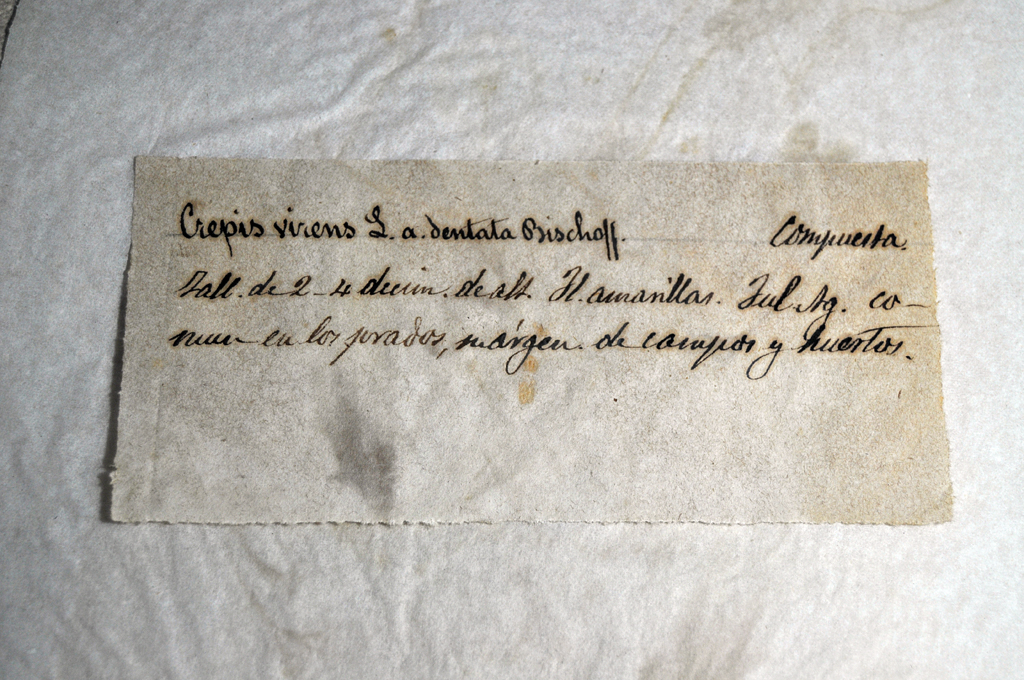 Crepis virens L. a. dentata Bischoff. Compuesta.
Tall. de 2-4 decim. de alt. Fl. amarillas. Jul. Ag. co-
mun en los prados, márgen. de campos y huertos.